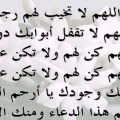 اللهم لا تخيب لهم رج
م لا تقفل أبوابك دو
م كن لهم ولا تكن ع
م كن لهم ولا تكن
ك وجودك يا أرحم ال
م هذا الدعاء ومنك ال